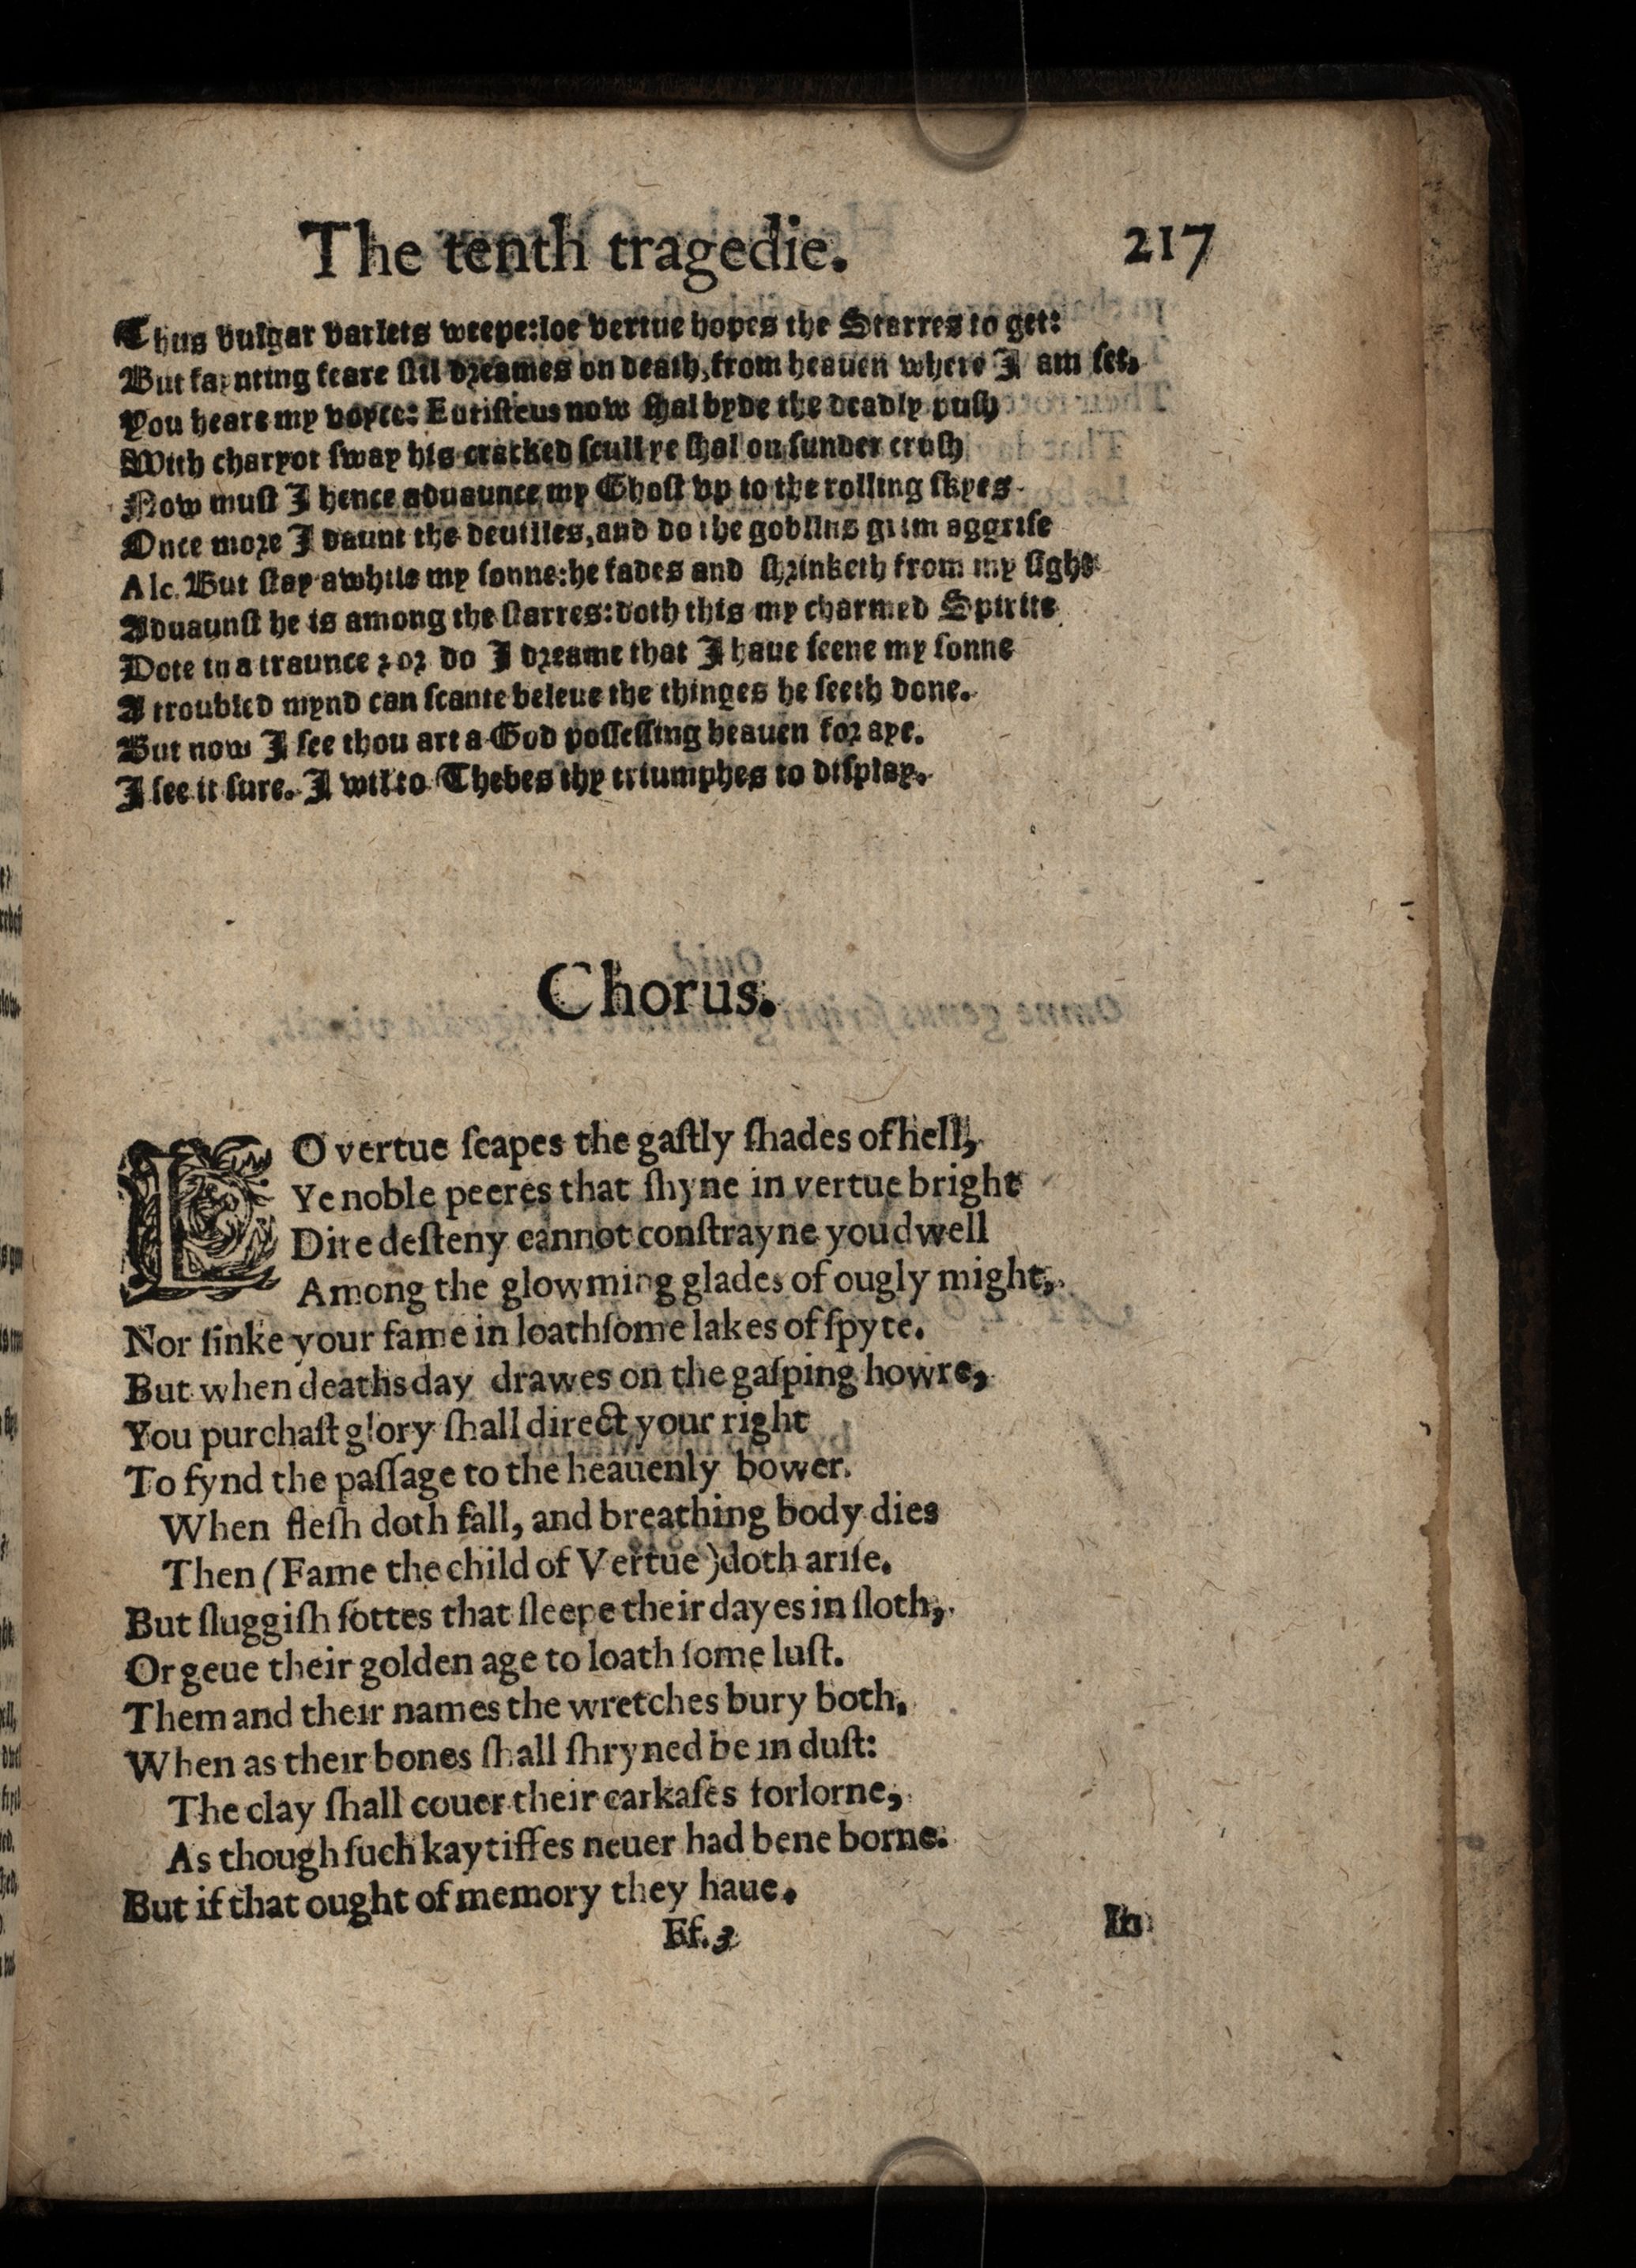 The tenth tragedie. 217
Thus vulgar varlets weepe:loe vertue hopes the Starres to get:
But faynting feare stil dreames on death, from heauen where I am set,
You heare my voyce: Euristeus now shal byde the deadly push
With charyot sway his cracked scull ye shal on sunder crush
Now must I hence aduaunce my Ghost vp to the rolling skyes
Once more I daunt the deuilles, and do the goblins grim aggrise
Alc. But stay awhile my sonne:he fades and shrinketh from my sight
Aduaunst he is among the starres:doth this my charmed Spirite
Dote in a traunce ? or do I dreame that I haue seene my sonne
A troubled mynd can scante beleue the thinges he seeth done.
But now I see thou art a God possessing heauen for aye.
I see it sure. I wil to Thebes thy triumphes to display.
Chorus.
LO vertue scapes the gastly shades of hell,
Ye noble peeres that shyne in vertue bright
Dire desteny cannot constrayne you dwell
Among the glowming glades of ougly might,
Nor sinke your fame in loathsome lakes of spyte.
But when deaths day drawes on the gasping howre,
You purchast glory shall direct your right
To fynd the passage to the heauenly bower.
When flesh doth fall, and breathing body dies
Then (Fame the child of Vertue) doth arise.
But sluggish sottes that sleepe their dayes in sloth,
Or geue their golden age to loath some lust.
Them and their names the wretches bury both,
When as their bones shall shryned be in dust:
The clay shall couer their carkases forlorne,
As though such kaytiffes neuer had bene borne.
But if that ought of memory they haue.
Ff.3 In